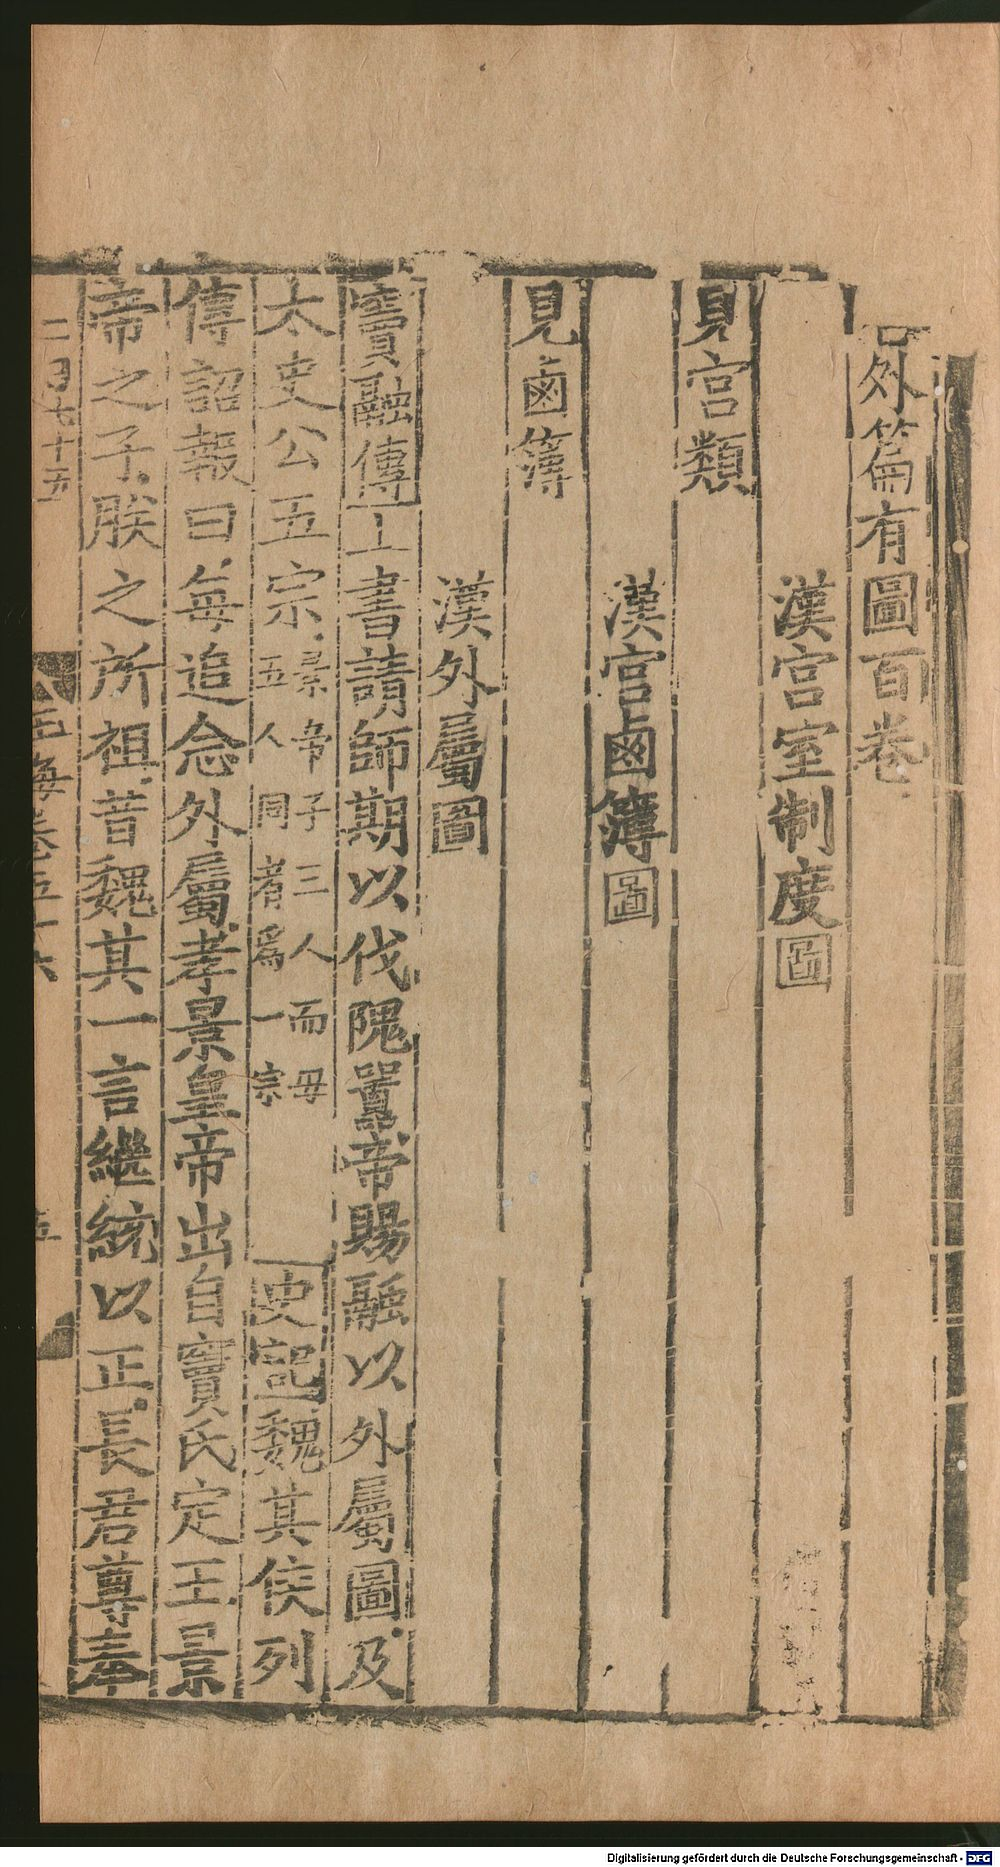 外篇有圖百卷
漢宮室制度圖
見宮類
漢宮鹵簿圖
見鹵簿
漢外屬圖
竇融傳上書請師期以伐隗囂帝賜融以外屬圖及
太史公五宗景帝子三人而毋
五人同者爲一宗史記魏其侯列
傳詔報曰每追念外屬孝景皇帝出自竇氏定王景
帝之子朕之所祖昔魏其一言繼統以正長君尊奉
二百七十五
玉海卷五十六
五
Digitalisierung gefördert durch die Deutsche Forschungsgemeinschaft - DFG